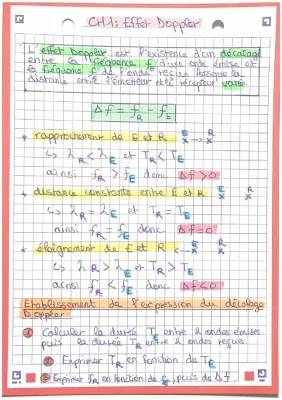 CH1: Effet Doppler
L'effet Doppler est l'existence d'un décalage
entre la fréquence fE d'une onde émise et
la fréquence fR de l'onde reçue lorsque la
distance entre l'émetteur et le récepteur varie
Δf = fR - fE
* rapprochement de E et R E R
↳ λR < λE et TR < TE
ainsi fR > fE donc Δf > 0
* distance constante entre E et R E R
↳ λR = λE et TR = TE
ainsi fR = fE donc Δf = 0
* éloignement de E et R E R
↳ λR > λE et TR > TE
ainsi fR < fE donc Δf < 0
Etablissement de l'expression du décalage
Doppler
① Calculer la durée TE entre 2 ondes émises
puis la durée TR entre 2 ondes reçues.
② Exprimer TR en fonction de TE
③ Exprimer fR en fonction de fE, puis de Δf.